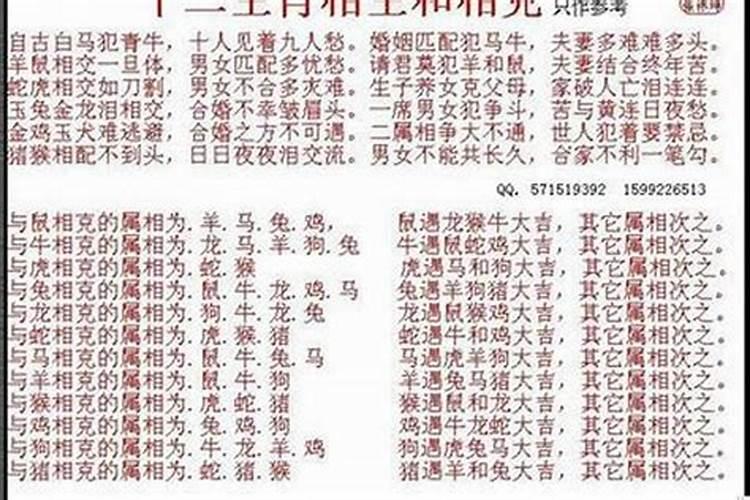 十二生肖相生和相克 只作参考
自古白马犯青牛，十人见着九人愁。婚姻匹配犯马牛，夫妻多难难多头。
羊鼠相交一旦休，男女匹配多忧愁。请君莫犯羊和鼠，夫妻结合终年苦。
蛇虎相交如刀割，男女不合多灾难。生子养女克父母，家破人亡泪连连。
玉兔金龙泪相交，合婚不幸皱眉头。一席男女犯争斗，苦与黄连日夜愁。
金鸡玉犬难逃避，合婚之方不可遇。二属相争大不通，世人犯着要禁忌。
猪猴相配不到头，日日夜夜泪交流。男女不能共长久，合家不利一笔勾。
QQ. 571519392 1599226513
与鼠相克的属相为.羊.马.兔.鸡， 鼠遇龙猴牛大吉，其它属相次之。
与牛相克的属相为.龙.马.羊.狗.兔 牛遇鼠蛇鸡大吉，其它属相次之。
与虎相克的属相为.蛇.猴 虎遇马和狗大吉，其它属相次之。
与兔相克的属相为.鼠.牛.龙.鸡.马 兔遇羊狗猪大吉，其它属相次之。
与龙相克的属相为.狗.牛.龙.兔 龙遇鼠猴鸡大吉，其它属相次之。
与蛇相克的属相为.虎.猴.猪 蛇遇牛和鸡大吉，其它属相次之。
与马相克的属相为.鼠.牛.兔.马 马遇虎羊狗大吉，其它属相次之。
与羊相克的属相为.鼠.牛.狗 羊遇兔马猪大吉，其它属相次之。
与猴相克的属相为.虎.蛇.猪 猴遇鼠和龙大吉，其它属相次之。
与鸡相克的属相为.兔.鸡.狗 鸡遇牛龙蛇大吉，其它属相次之。
与狗相克的属相为.牛.龙.羊.鸡 狗遇虎兔马大吉，其它属相次之。
与猪相克的属相为.蛇.猪.猴 猪遇羊和兔大吉，其它属相次之。